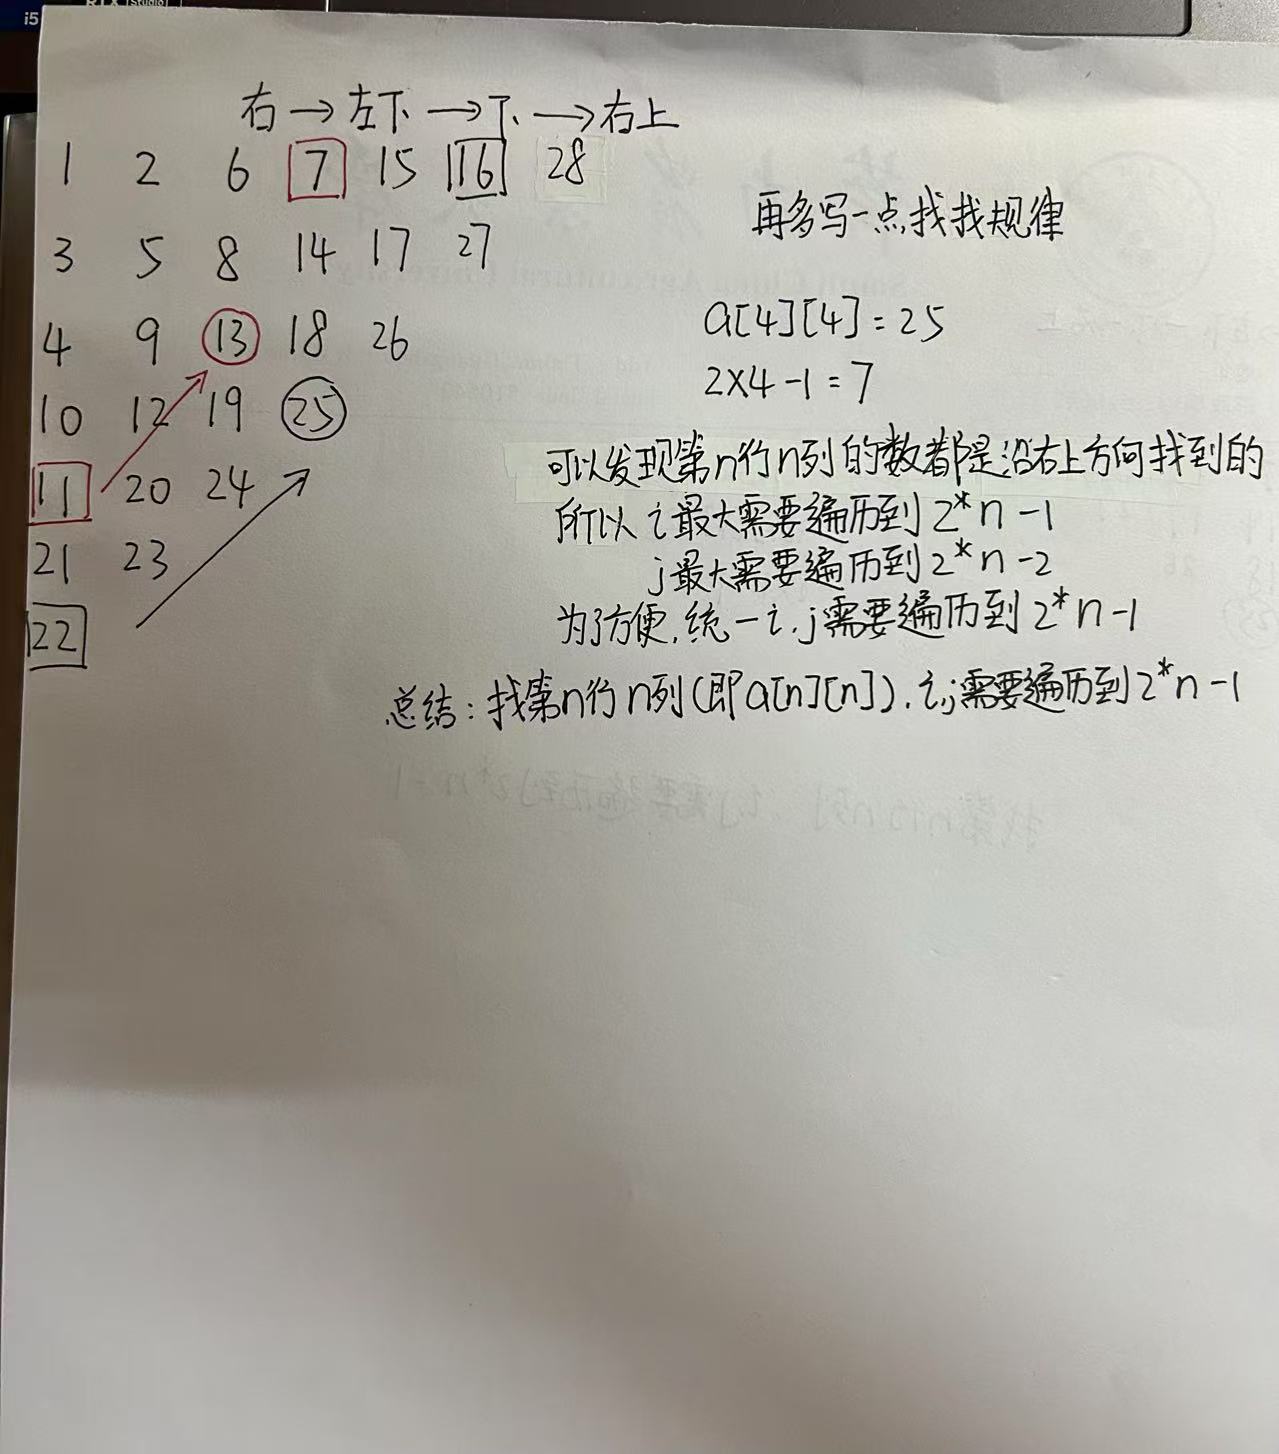 i5
RTX Studio
右→左下→下→右上
1 2 6 7 15 16 28
3 5 8 14 17 27
4 9 13 18 26
10 12 19 25
11 20 24
21 23
22
再多写一点找找规律
a[4][4]=25
2×4-1=7
可以发现第n行n列的数都是沿右上方向找到的
所以 i最大需要遍历到 2*n-1
j最大需要遍历到 2*n-2
为了方便,统一i,j需要遍历到 2*n-1
总结:找第n行n列(即a[n][n]),i,j需要遍历到2*n-1